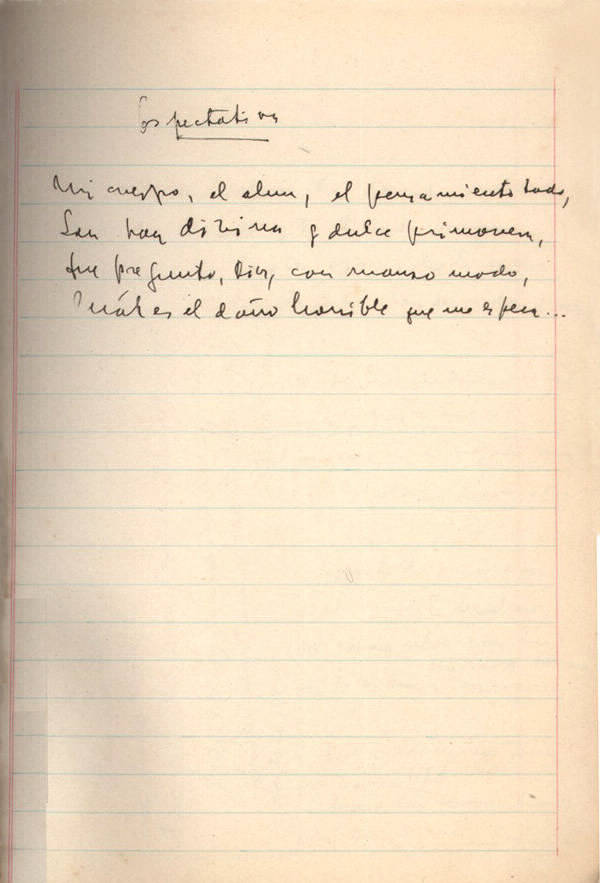 Espectativa
Mi cuerpo, el alma, el pensamiento todo,
Son hoy divina y dulce primavera,
Que pregunto, Dios, con manso modo,
Cuál es el daño horrible que me espera...